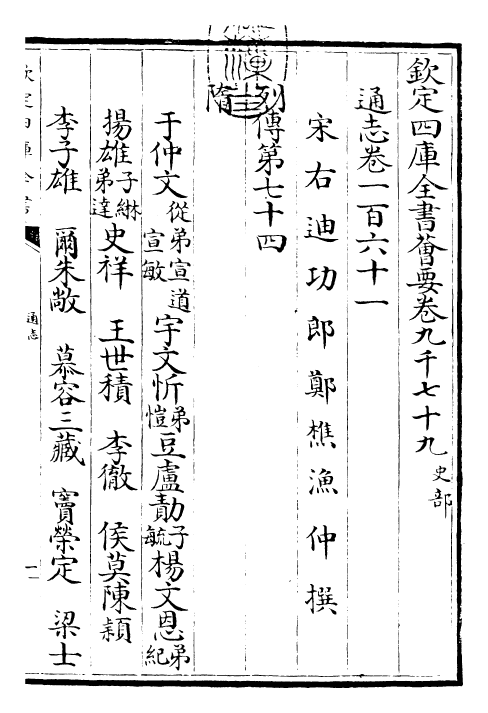 欽定四庫全書薈要卷九千七十九 史部
通志卷一百六十一
宋右迪功郎鄭樵漁仲撰
列傳第七十四
隋
于仲文 從弟宣道 宣敏 宇文忻 弟愷 豆盧勣 子毓 楊文恩 弟紀
揚雄 子綝 弟達 史祥 王世積 李徹 侯莫陳穎
李子雄 爾朱敞 慕容三藏 竇榮定 梁士
通志